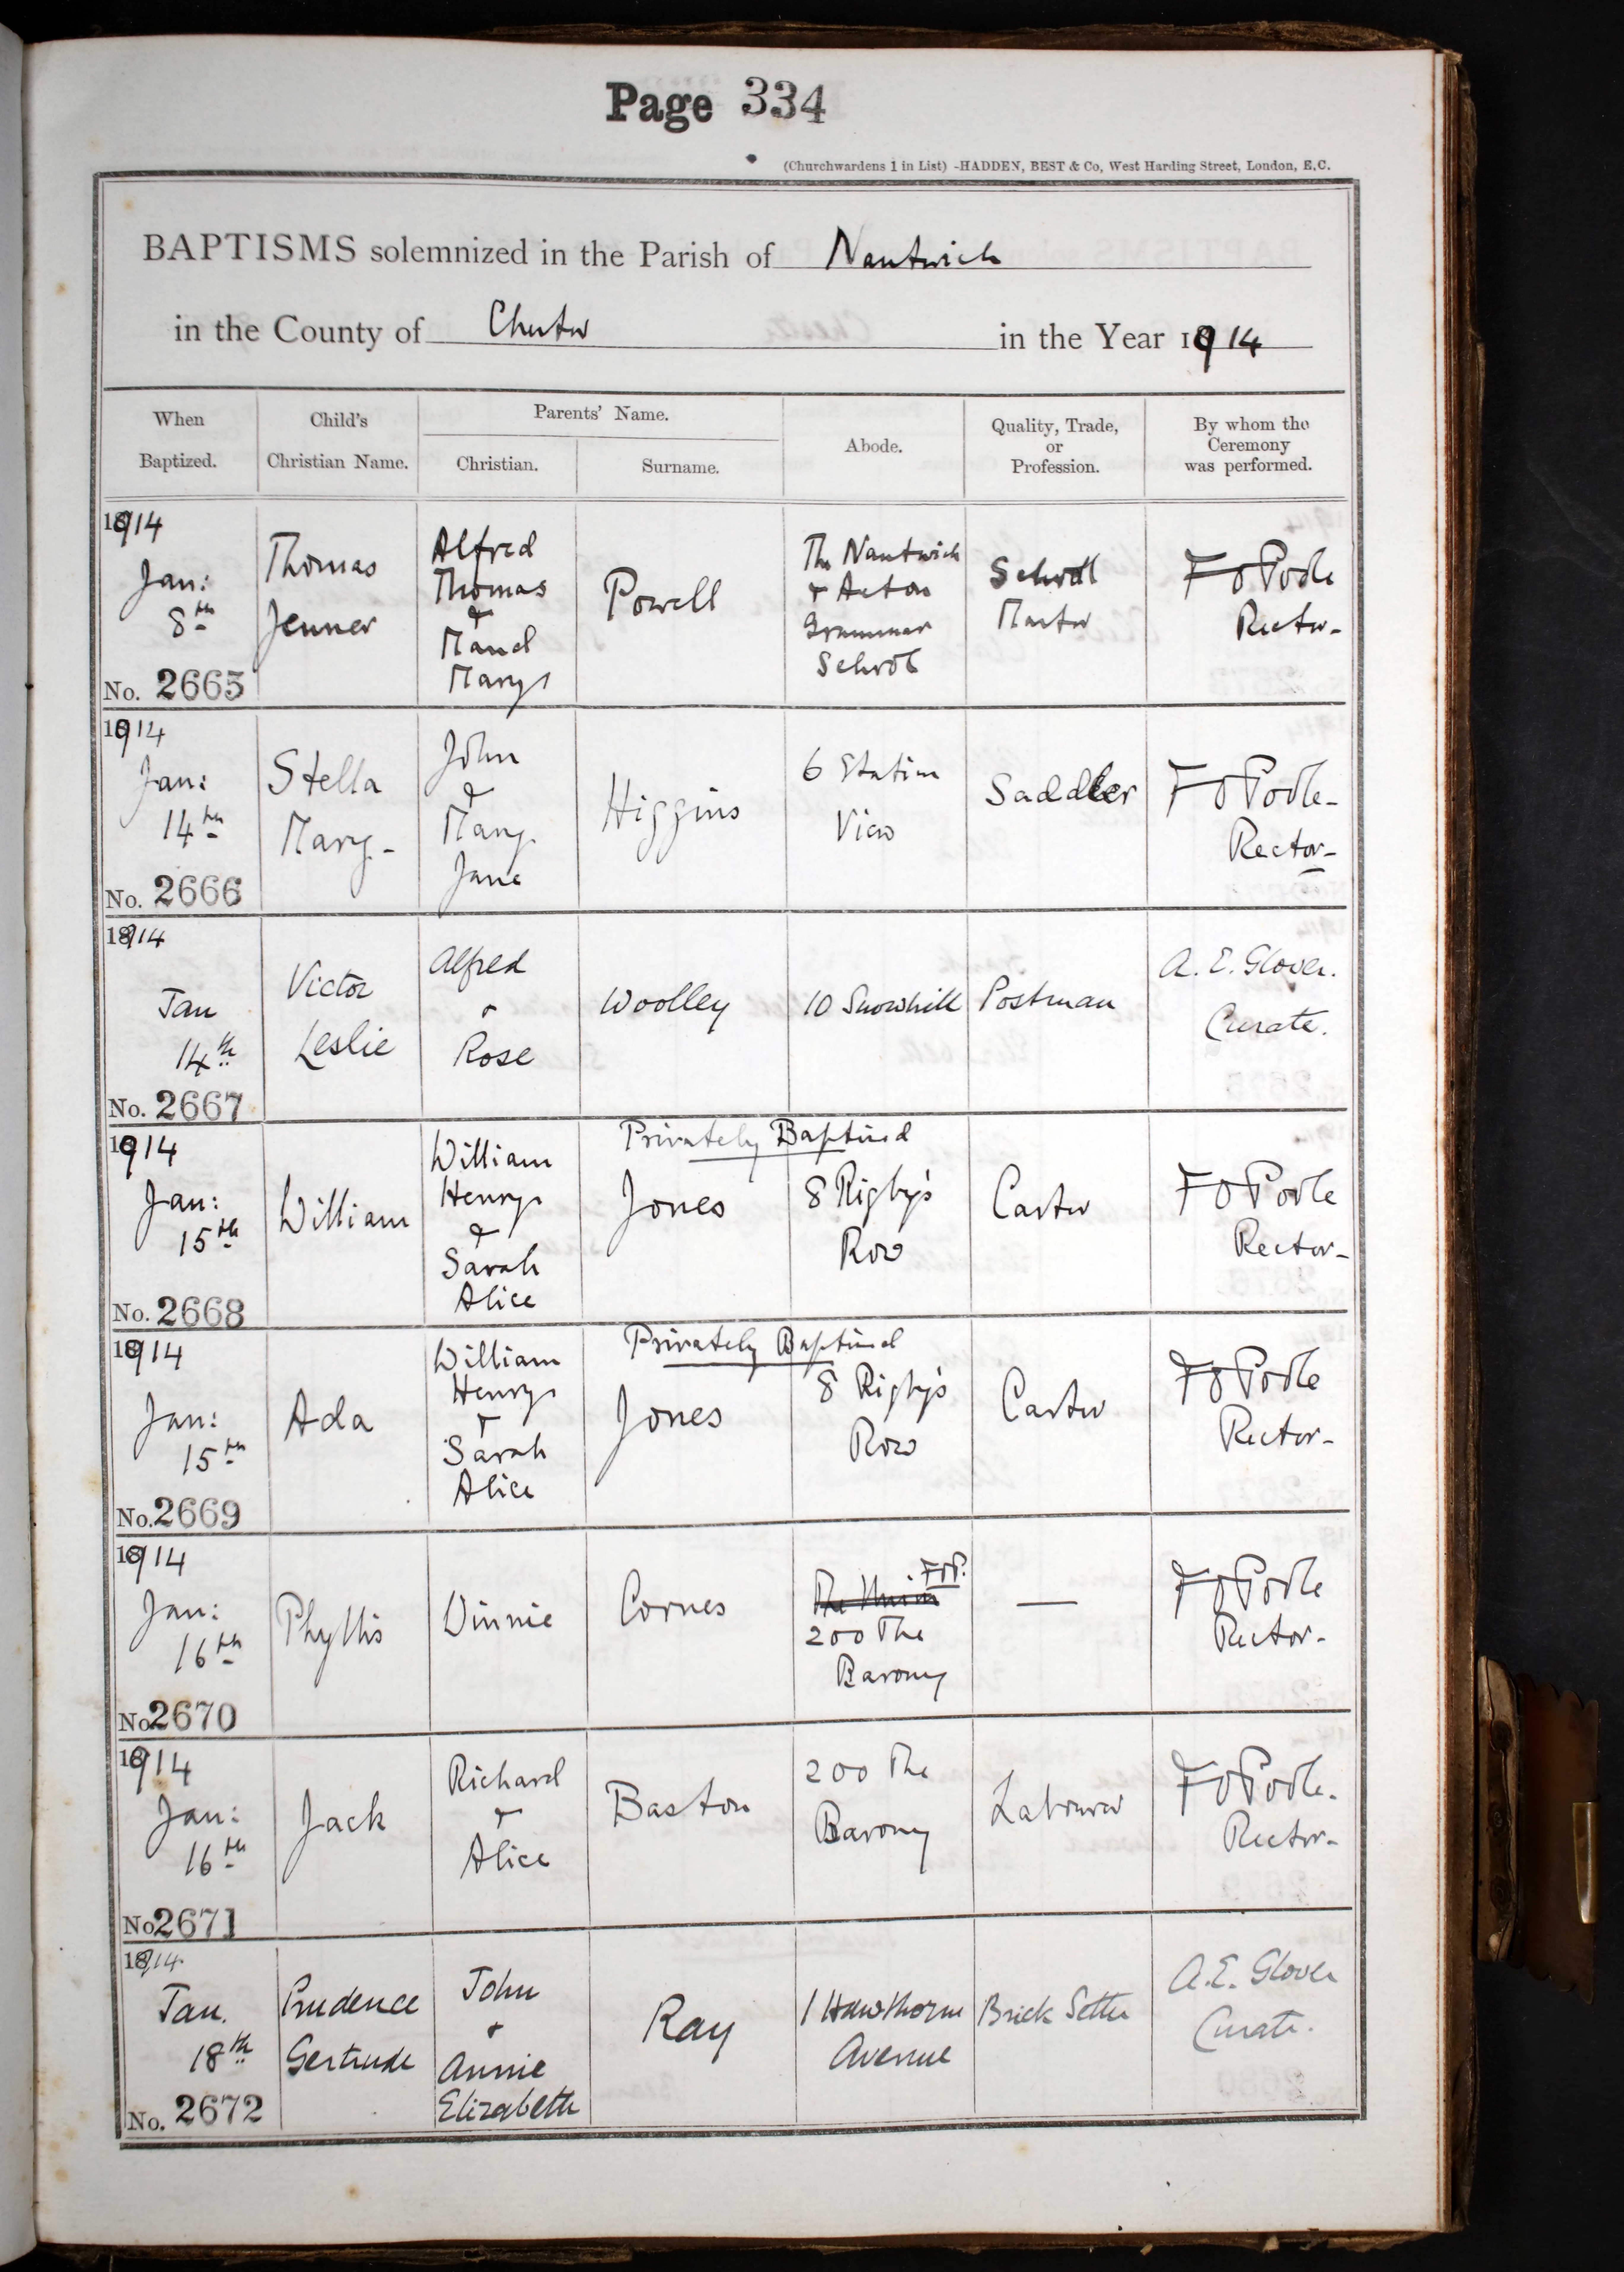 Page 334
(Churchwardens 1 in List) -HADDEN, BEST & Co, West Harding Street, London, E.C.
BAPTISMS solemnized in the Parish of Nantwich
in the County of Chester in the Year 1914
When Baptized.
Child's Christian Name.
Parents' Name.
Christian.
Surname.
Abode.
Quality, Trade, or Profession.
By whom the Ceremony was performed.
1914
Jan:
8th
No. 2665
Thomas
Jenner
Alfred
Thomas
&
Maud
Mary
Powell
The Nantwich
& Acton
Grammar
School
School
Master
F O Poole
Rector-
1914
Jan:
14th
No. 2666
Stella
Mary-
John
&
Mary
Jane
Higgins
6 Station
View
Saddler
F O Poole-
Rector-
1914
Jan
14th
No. 2667
Victor
Leslie
Alfred
&
Rose
Woolley
10 Snowhill
Postman
A. E. Glover.
Curate.
1914
Jan:
15th
No. 2668
William
William
Henry
&
Sarah
Alice
Privately Baptised
Jones
8 Rigby's
Row
Carter
F O Poole
Rector-
1914
Jan:
15th
No. 2669
Ada
William
Henry
&
Sarah
Alice
Privately Baptised
Jones
8 Rigby's
Row
Carter
F O Poole
Rector-
1914
Jan:
16th
No. 2670
Phyllis
Winnie
Cornes
F O P.
The Union
200 The
Barony
—
F O Poole
Rector-
1914
Jan:
16th
No. 2671
Jack
Richard
&
Alice
Baston
200 The
Barony
Labourer
F O Poole.
Rector-
1914
Jan.
18th
No. 2672
Prudence
Gertrude
John
&
Annie
Elizabeth
Ray
1 Hawthorne
Avenue
Brick Setter
A. E. Glover
Curate.